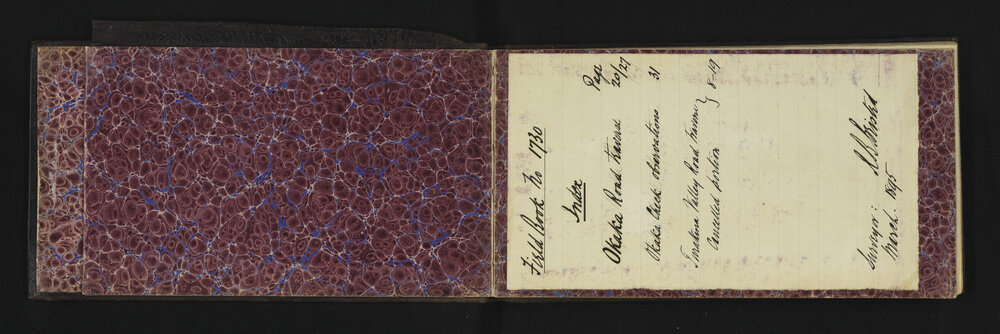 Field Book No 1730
Index
Page
Okahu Road Traverse 20/27
Okahu Check observations 31
Valley Road Traverse } 8-19
Cancelled portion
Surveyor:
March 1895